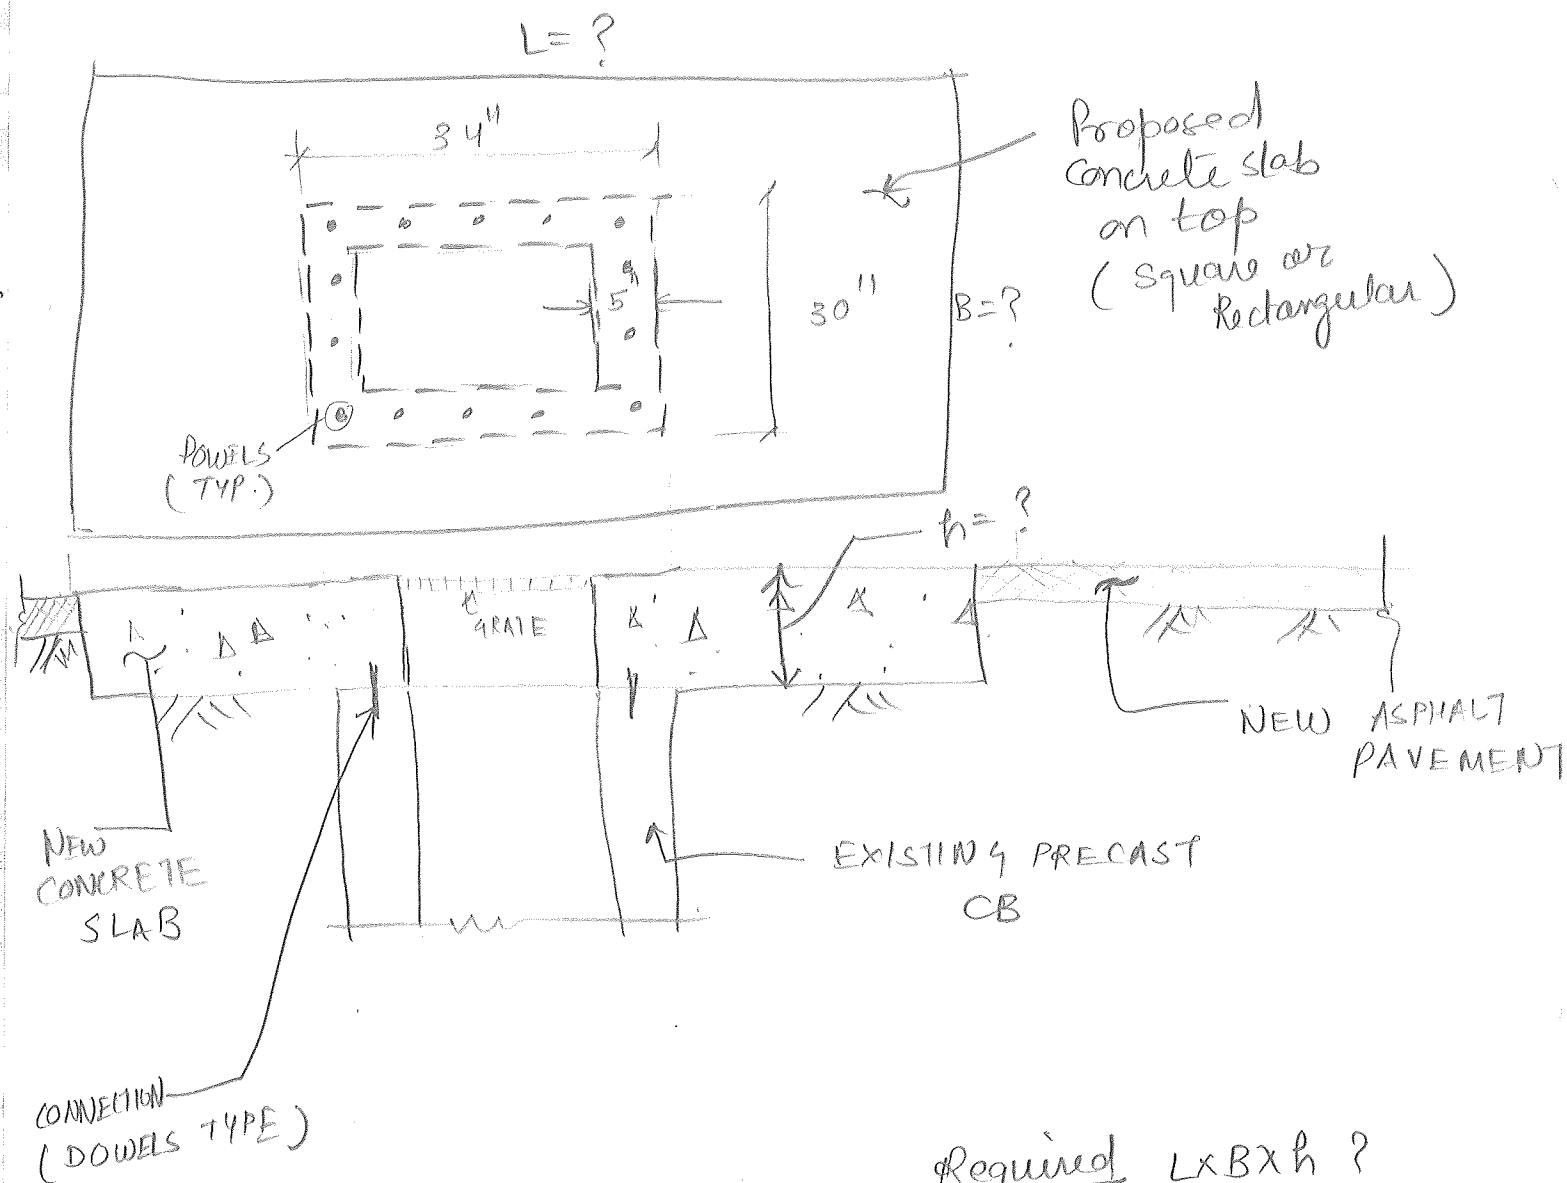 L= ?
34"
Proposed
concrete slab
on top
( Square or
Rectangular )
5"
30"
B=?
DOWELS
( TYP. )
h= ?
GRATE
NEW ASPHALT
PAVEMENT
NEW
CONCRETE
SLAB
EXISTING PRECAST
CB
CONNECTION
( DOWELS TYPE )
Required LxBxh ?